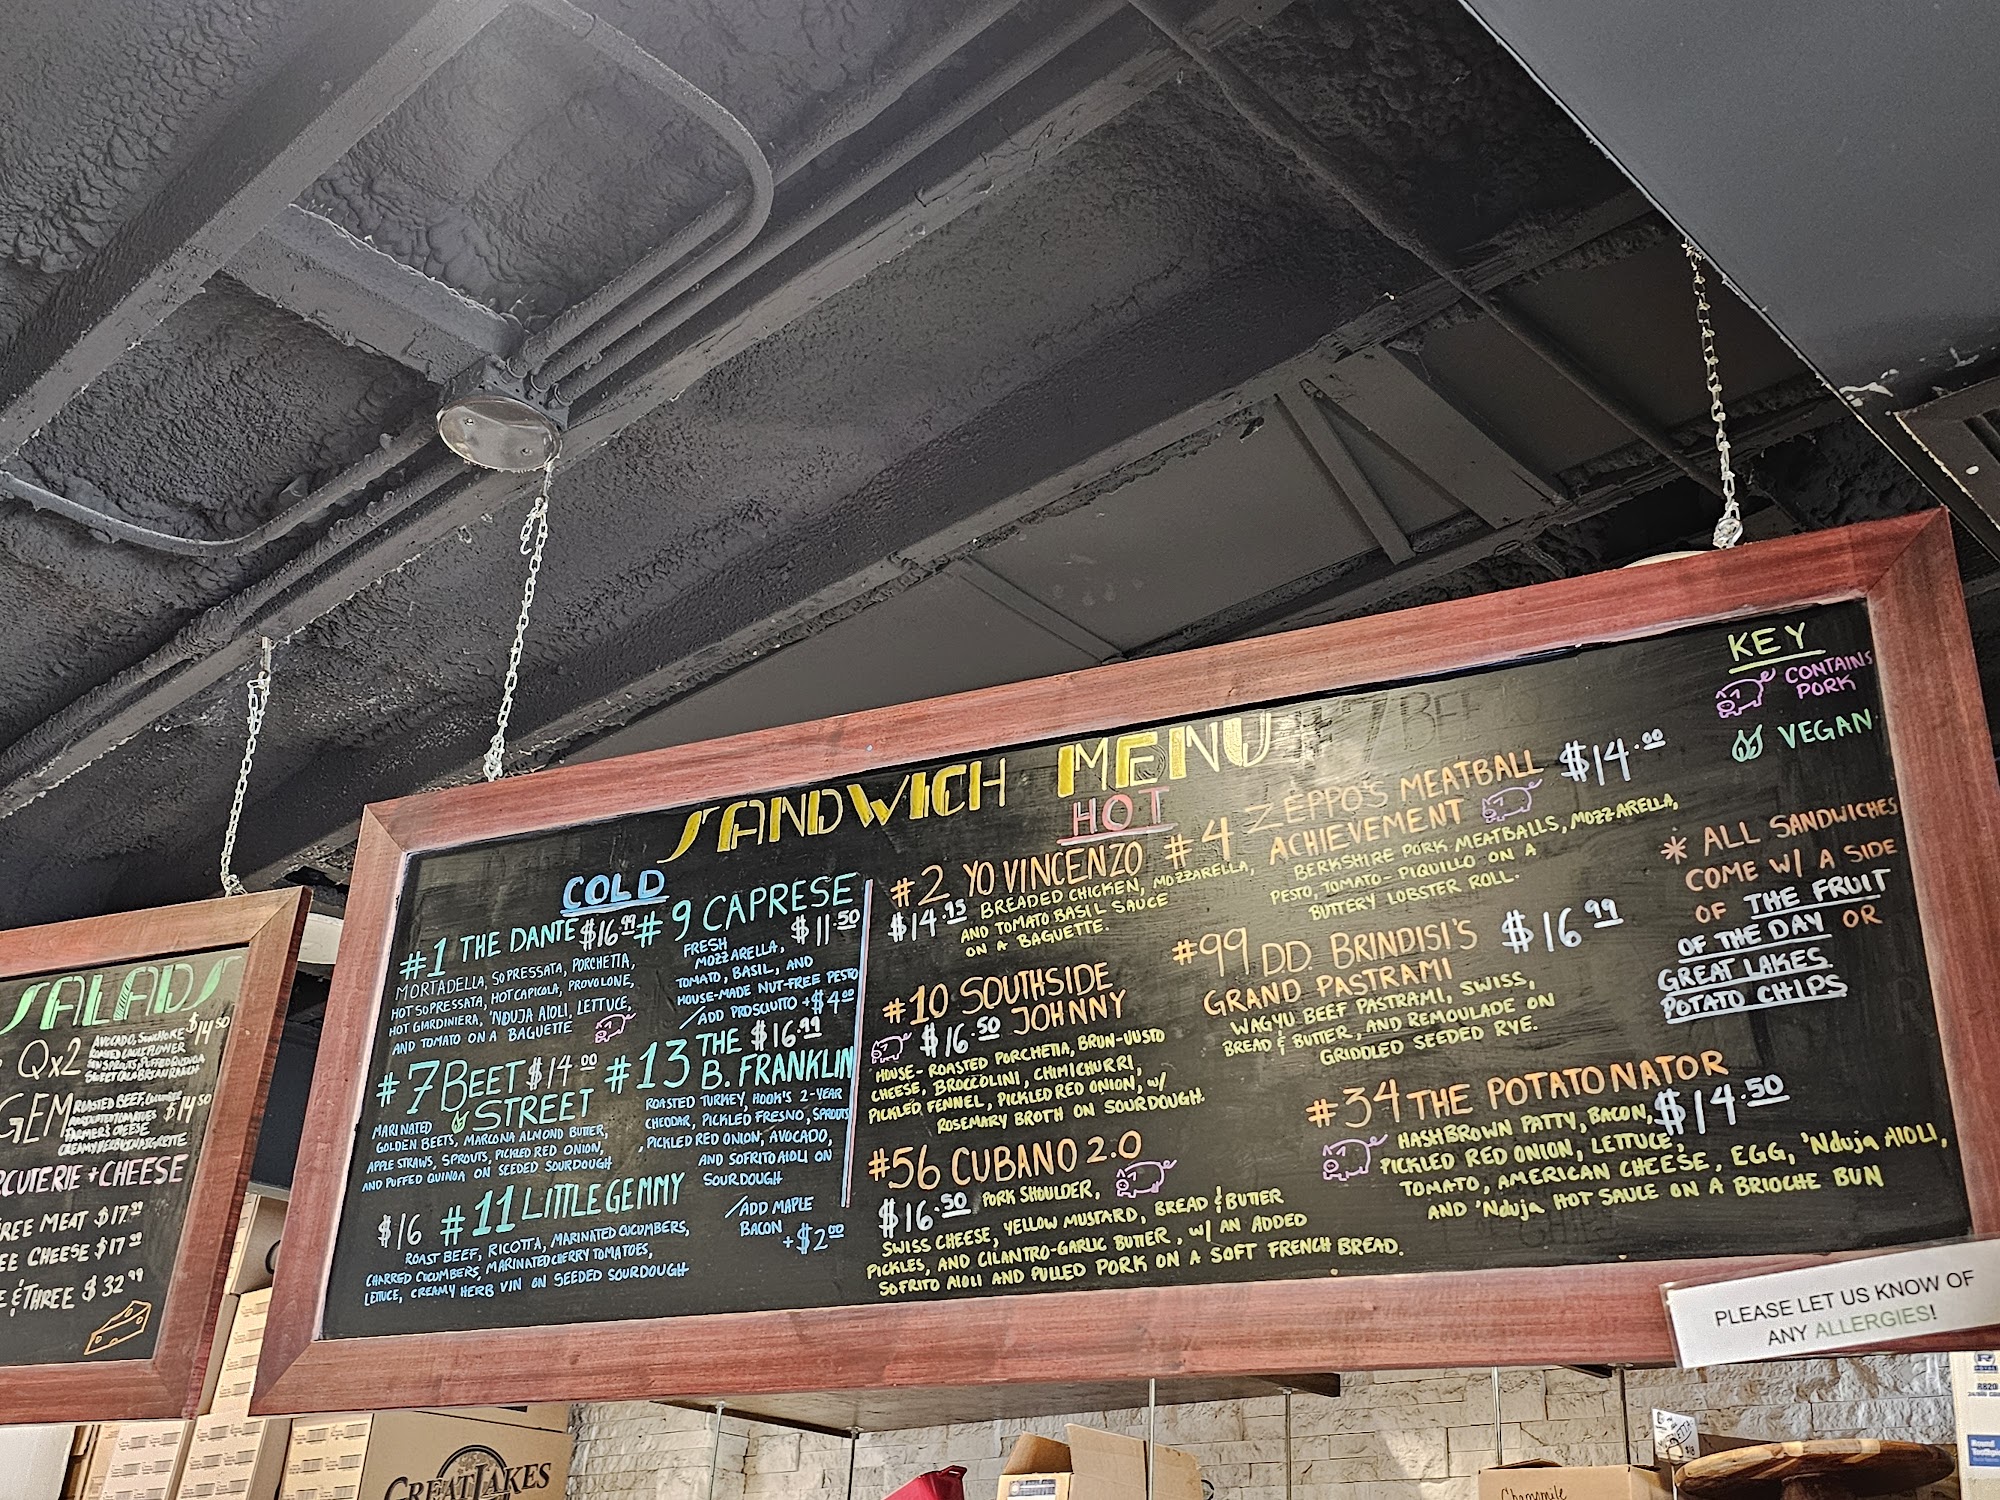 SALADS
Qx2
AVOCADO, SUNCHOKE
$14.50
ROASTED CAULIFLOWER
SWEET CALABRIAN RANCH
GEM
ROASTED BEEF, CUCUMBER
$14.50
FARMER'S CHEESE
CREAMY HERB VINAIGRETTE
+ CHEESE
MEAT $17.99
CHEESE $17.99
& THREE $32.99
SANDWICH MENU
COLD
#1 THE DANTE $16.99
MORTADELLA, SOPRESSATA, PORCHETTA,
HOT SOPRESSATA, HOT CAPICOLA, PROVOLONE,
HOT GIARDINIERA, 'NDUJA AIOLI, LETTUCE,
AND TOMATO ON A BAGUETTE
#7 BEET $14.00
STREET
MARINATED
GOLDEN BEETS, MARCONA ALMOND BUTTER,
APPLE STRAWS, SPROUTS, PICKLED RED ONION,
AND PUFFED QUINOA ON SEEDED SOURDOUGH
$16 #11 LITTLE GEMMY
ROAST BEEF, RICOTTA, MARINATED CUCUMBERS,
CHARRED CUCUMBERS, MARINATED CHERRY TOMATOES,
LETTUCE, CREAMY HERB VIN ON SEEDED SOURDOUGH
#9 CAPRESE
FRESH
MOZZARELLA, $11.50
TOMATO, BASIL, AND
HOUSE-MADE NUT-FREE PESTO
/ADD PROSCIUTTO +$4.00
#13 THE $16.99
B. FRANKLIN
ROASTED TURKEY, HOOK'S 2-YEAR
CHEDDAR, PICKLED FRESNO, SPROUTS
, PICKLED RED ONION, AVOCADO,
AND SOFRITO AIOLI ON
SOURDOUGH
/ADD MAPLE
BACON +$2.00
HOT
#2 YO VINCENZO
$14.95 BREADED CHICKEN, MOZZARELLA,
AND TOMATO BASIL SAUCE
ON A BAGUETTE.
#10 SOUTHSIDE
$16.50 JOHNNY
HOUSE-ROASTED PORCHETTA, BRUN-UUSTO
CHEESE, BROCCOLINI, CHIMICHURRI,
PICKLED FENNEL, PICKLED RED ONION, W/
ROSEMARY BROTH ON SOURDOUGH.
#56 CUBANO 2.0
$16.50 PORK SHOULDER,
SWISS CHEESE, YELLOW MUSTARD, BREAD & BUTTER
PICKLES, AND CILANTRO-GARLIC BUTTER, W/ AN ADDED
SOFRITO AIOLI AND PULLED PORK ON A SOFT FRENCH BREAD.
#4 ZEPPO'S MEATBALL $14.00
ACHIEVEMENT
BERKSHIRE PORK MEATBALLS, MOZZARELLA,
PESTO, TOMATO-PIQUILLO ON A
BUTTERY LOBSTER ROLL.
#99 D.D. BRINDISI'S $16.99
GRAND PASTRAMI
WAGYU BEEF PASTRAMI, SWISS,
BREAD & BUTTER, AND REMOULADE ON
GRIDDLED SEEDED RYE.
#34 THE POTATONATOR
HASHBROWN PATTY, BACON, $14.50
PICKLED RED ONION, LETTUCE,
TOMATO, AMERICAN CHEESE, EGG, 'Nduja AIOLI,
AND 'Nduja HOT SAUCE ON A BRIOCHE BUN
KEY
CONTAINS
PORK
VEGAN
* ALL SANDWICHES
COME W/ A SIDE
OF THE FRUIT
OF THE DAY OR
GREAT LAKES
POTATO CHIPS
PLEASE LET US KNOW OF
ANY ALLERGIES!
GREAT LAKES
Chamomile
R820